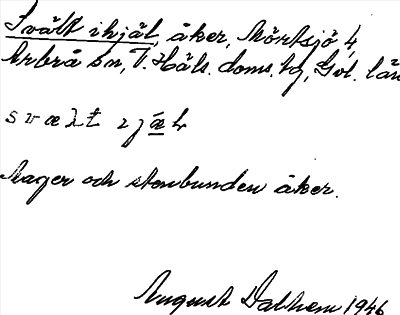 Svält ihjäl, åker, Mörtsjö 4,
Arbrå sn, V. Häls. doms. hg, Gvl. län
svælt ijæl
Mager och stenbunden åker.
August Dalhem 1946